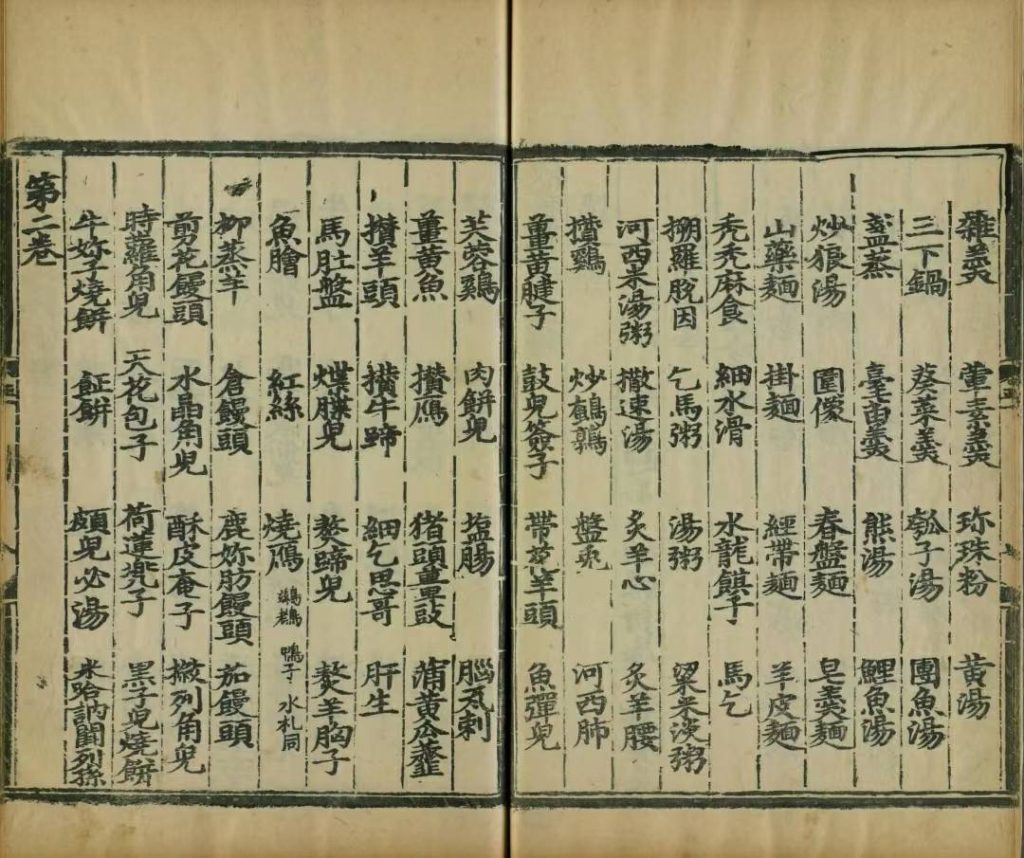 雜羹 葷素羹 珎珠粉 黄湯
三下鍋 葵菜羹 瓠子湯 團魚湯
盞蒸 臺苗羹 熊湯 鯉魚湯
炒狼湯 圍像 春盤麵 皂羹麵
山藥麵 掛麵 經帶麵 羊皮麵
秃秃麻食 細水滑 水龍䭜子 馬乞
搠羅脱因 乞馬粥 湯粥 粱米淡粥
河西米湯粥 撒速湯 炙羊心 炙羊腰
攢鷄 炒鵪鶉 盤兎 河西肺
薑黄腱子 鼓兒簽子 帶花羊頭 魚彈兒
芙蓉鷄 肉餅兒 塩腸 腦瓦剌
薑黄魚 攢鴈 猪頭薑豉 蒲黄瓜虀
攢羊頭 攢牛蹄 細乞思哥 肝生
馬肚盤 煠兒 熬蹄兒 熬羊胸子
魚膾 紅絲 燒鴈 鴨子 水札同
柳蒸羊 倉饅頭 鹿妳肪饅頭 茄饅頭
剪花饅頭 水晶角兒 酥皮奄子 撇列角兒
時蘿角兒 天花包子 荷蓮兜子 黑子兒燒餅
牛妳子燒餅 餅 頗兒必湯 米哈訥闕列孫
第二卷